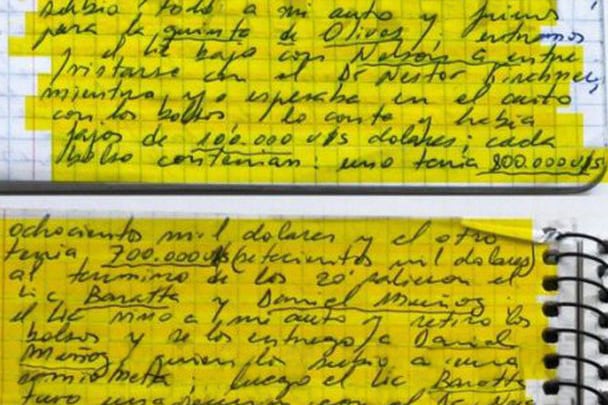 subio todo a mi auto y fuimos
para la quinta de Olivos, entramos
y el lic bajo con Nelson a entre
vistarse con el Dr Nestor Kirchner,
mientra yo esperaba en el auto
con los bolsos, lo conte y habia
fajos de 100.000 u$s dolares; cada
bolso contenian: uno tenia 800.000 u$s
ochocientos mil dolares y el otro
tenia 700.000 u$s (setecientos mil dolares)
al termino de los 20' salieron el
Lic Baratta y Daniel Muñoz
el Lic vino a mi auto y retiro los
bolsos y se los entrego a Daniel
Muñoz, quien los subio a una
camioneta, luego el Lic Baratta
tuvo una reunion con el Dr